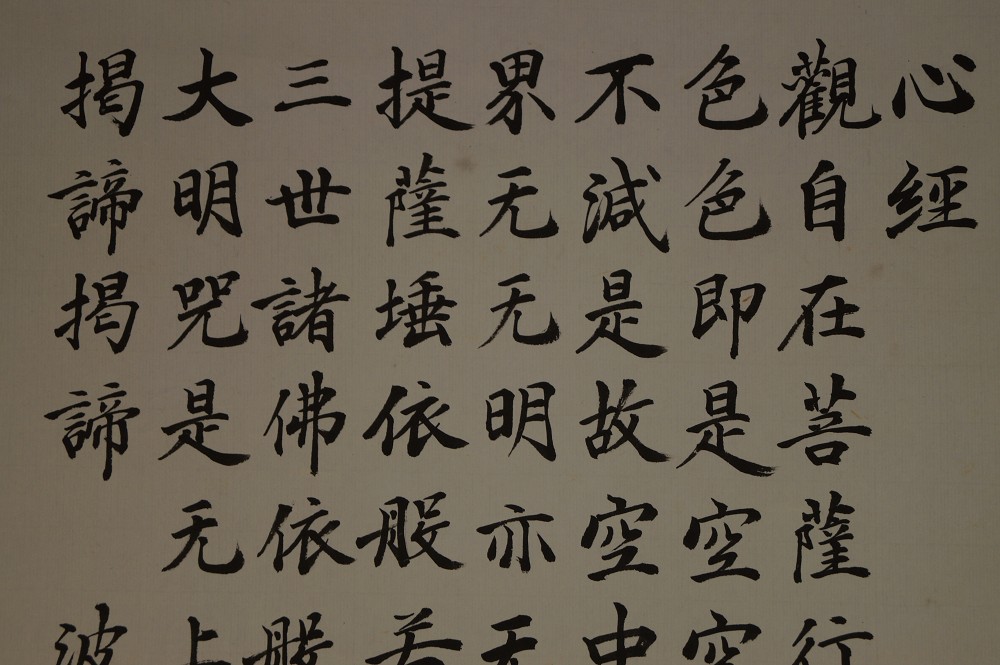 心經
觀自在菩薩行
色色即是空空
不減是故空中
界无无明亦无
提薩埵依般若
三世諸佛依般
大明咒是无上
揭諦揭諦 波